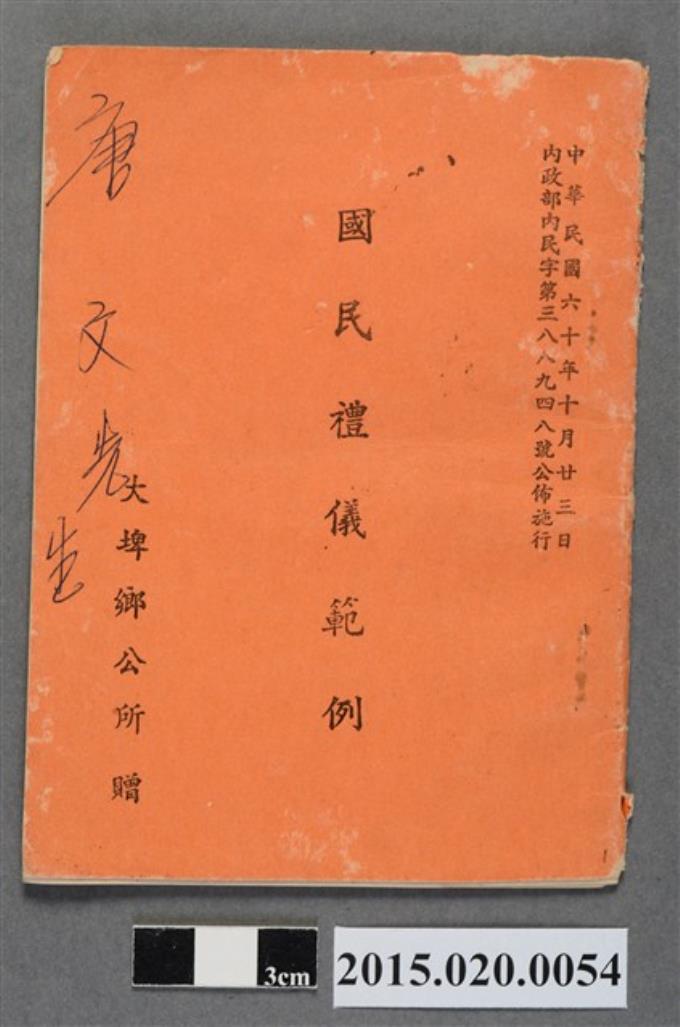 中華民國六十年十月廿三日
內政部內民字第三八八九四八號公佈施行
國民禮儀範例
大埤鄉公所贈
唐文先生
3cm
2015.020.0054